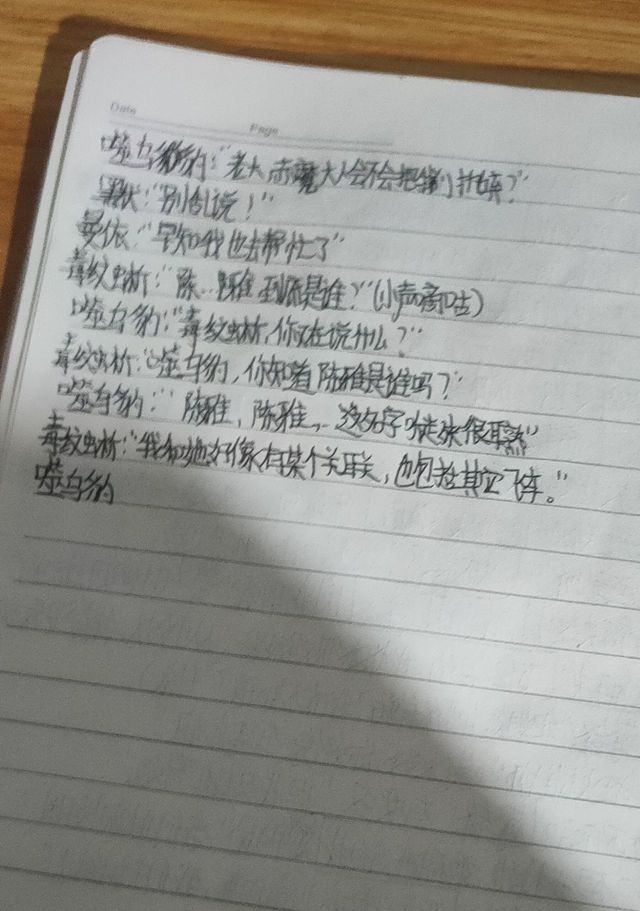 Date
Page
噬乌豹："老大,赤魔大人会不会把我们拆碎？"
："别乱说！"
曼依："早知我也去帮忙了"
毒纹蜥："陈…陈雅到底是谁？"(小声嘀咕)
噬乌豹："毒纹蜥,你在说什么？"
毒纹蜥："噬乌豹,你知道陈雅是谁吗？"
噬乌豹："陈雅,陈雅…这名字听起来很耳熟"
毒纹蜥："我和她好像有某个关联,也包括其它飞车。"
噬乌豹